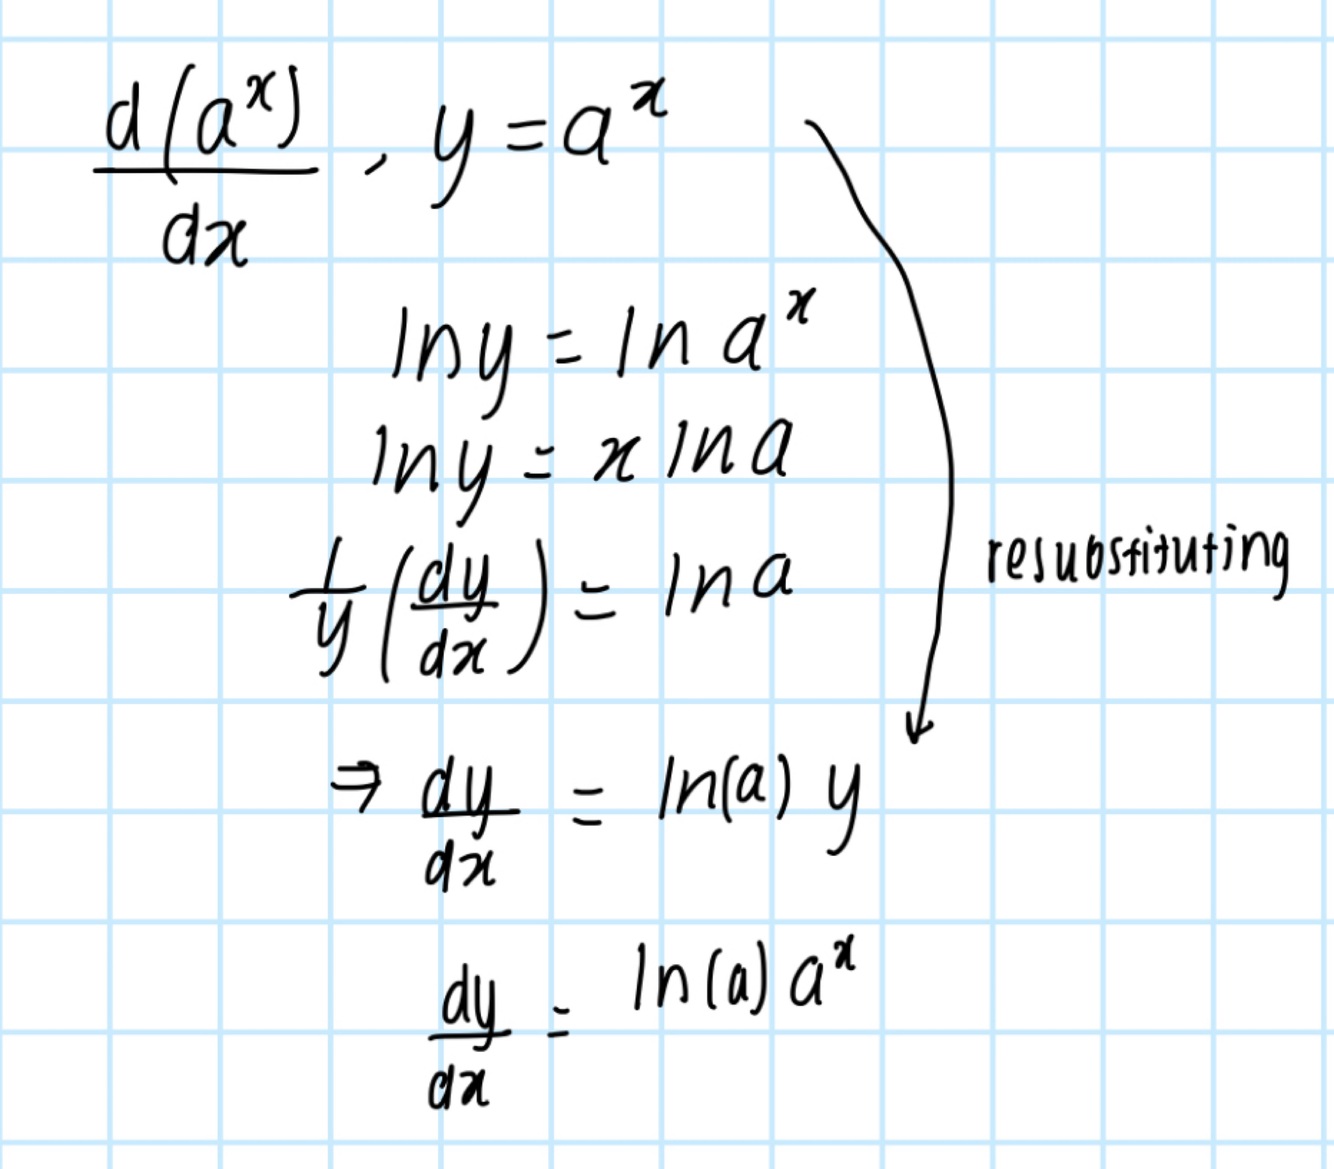 d(a^x)/dx , y = a^x
ln y = ln a^x
ln y = x ln a
1/y (dy/dx) = ln a
resubstituting
⇒ dy/dx = ln(a) y
dy/dx = ln(a) a^x